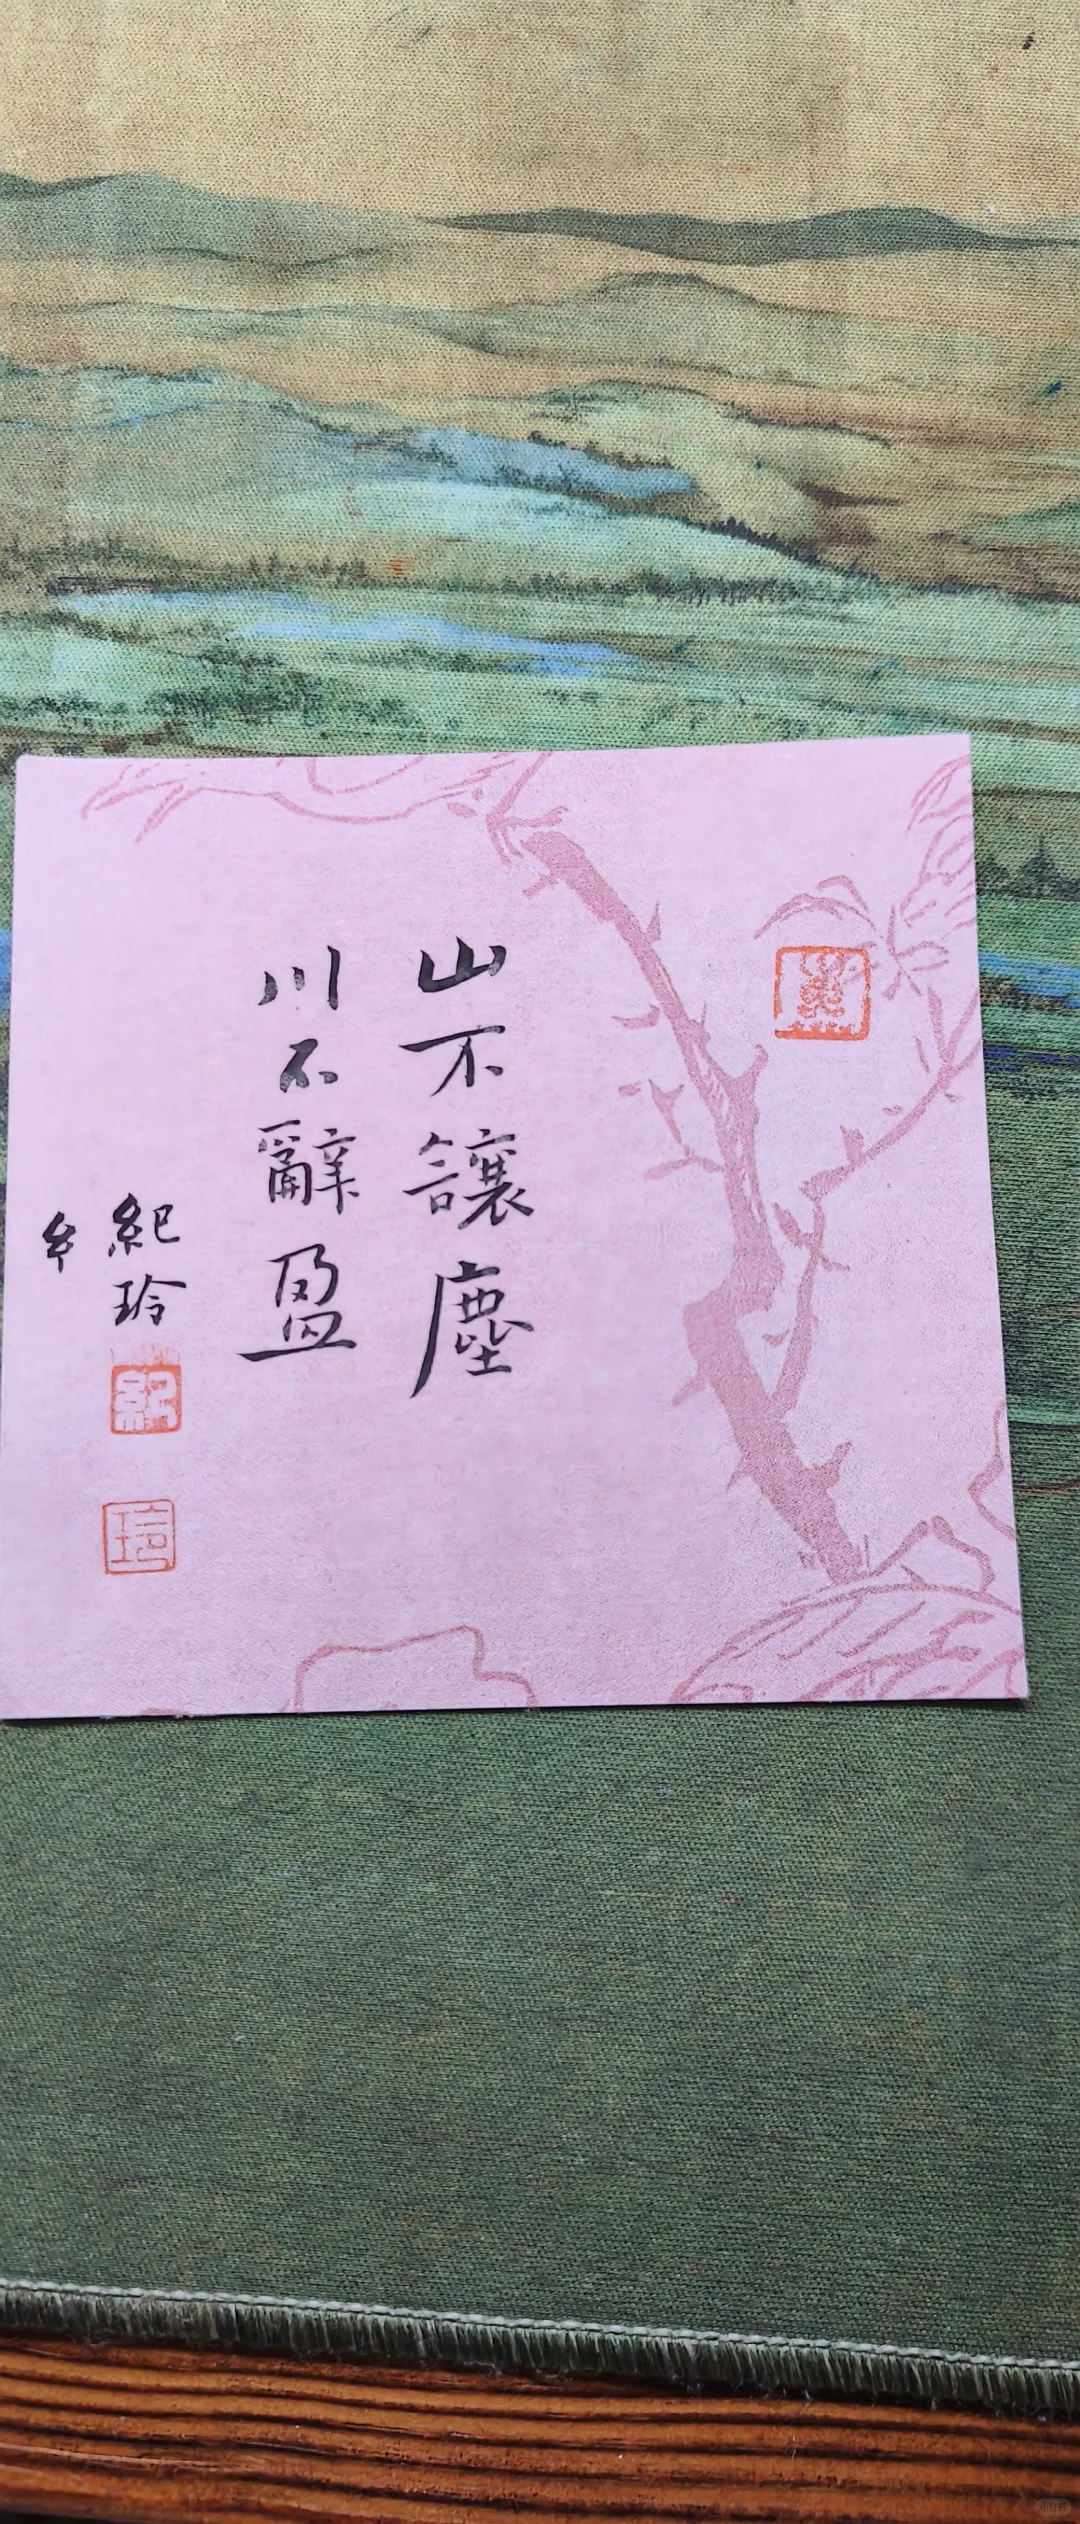 山不讓塵
川不辭盈
紀玲
紀
玲